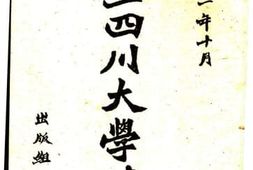 一年十月
立四川大學
出版組